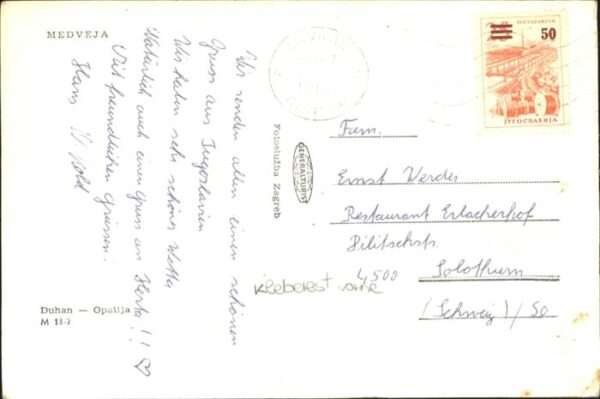 MEDVEJA
Wir senden allen einen schönen
Gruss aus Jugoslavien
Wir haben sehr schönes Wetter
Natürlich auch einen Gruss an Herta!! ♡
Mit freundlichen Grüssen!
Hans
Duhan — Opatija
M 18-7
Fotoslužba Zagreb
GENERALTURIST
JUGOSLAVIJA
50
JUGOSLAVIJA
Fam.
Ernst
Restaurant Erlacherhof
4500 Solothurn
(Schweiz)/So